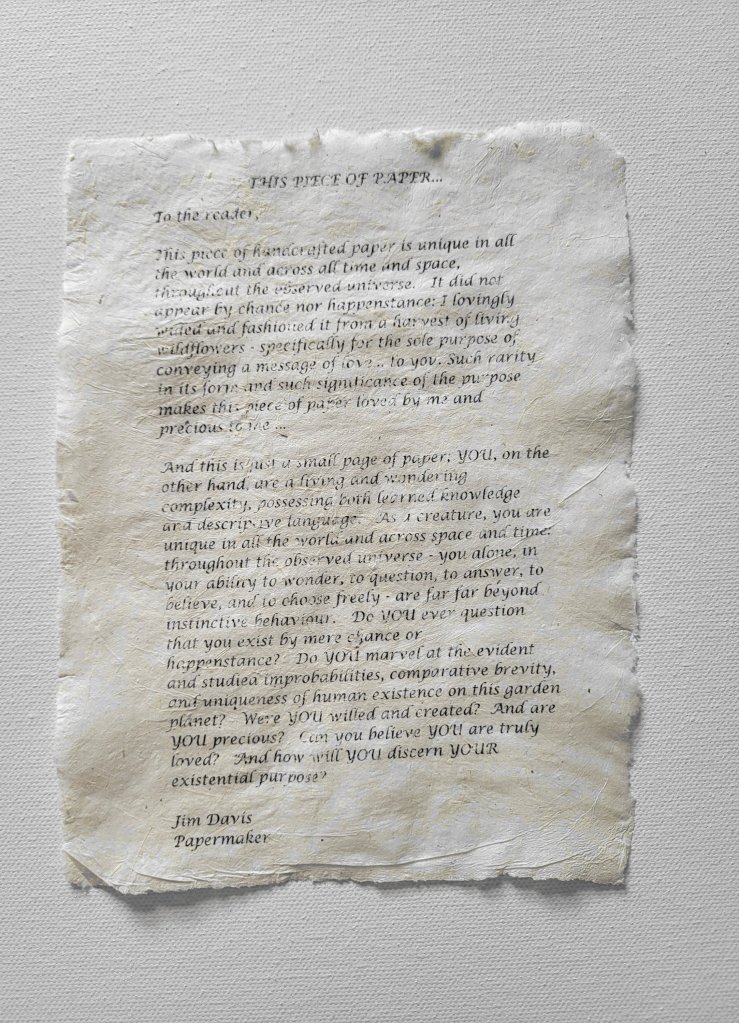 THIS PIECE OF PAPER...
To the reader,
This piece of handcrafted paper is unique in all
the world and across all time and space,
throughout the observed universe. It did not
appear by chance nor happenstance: I lovingly
willed and fashioned it from a harvest of living
wildflowers - specifically for the sole purpose of
conveying a message of love... to you. Such rarity
in its form and such significance of the purpose
makes this piece of paper loved by me and
precious to me ...
And this is just a small page of paper; YOU, on the
other hand, are a living and wondering
complexity, possessing both learned knowledge
and descriptive language. As a creature, you are
unique in all the world and across space and time:
throughout the observed universe - you alone, in
your ability to wonder, to question, to answer, to
believe, and to choose freely - are far far beyond
instinctive behaviour. Do YOU ever question
that you exist by mere chance or
happenstance? Do YOU marvel at the evident
and studied improbabilities, comparative brevity,
and uniqueness of human existence on this garden
planet? Were YOU willed and created? And are
YOU precious? Can you believe YOU are truly
loved? And how will YOU discern YOUR
existential purpose?
Jim Davis
Papermaker